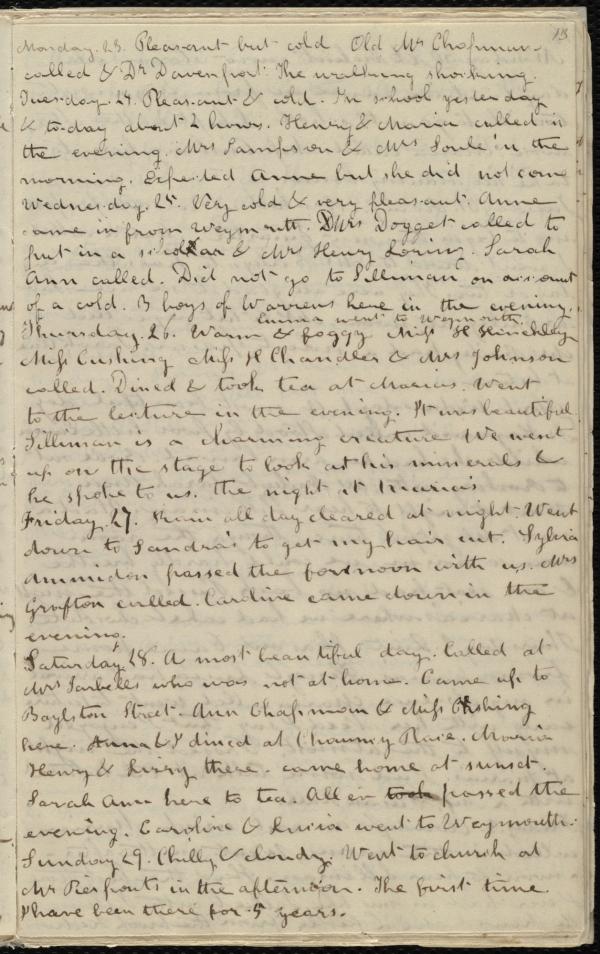 13
Monday. 23. Pleasant but cold Old Mr Chapman
called & Dr Davenport. The walking shocking.
Tuesday. 24. Pleasant & cold. In school yesterday
& to-day about 2 hours. Henry & Maria called in
the evening. Mrs Sampson & Mrs Soule in the
morning. Expected Anne but she did not come
Wednesday. 25. Very cold & very pleasant. Anne
came in from Weymouth. Mrs Dogget called to
put in a scholar & Mrs Henry Loring. Sarah
Ann called. Did not go to Silliman on account
of a cold. 3 boys of Warrens here in the evening.
Emma went to Weymouth
Thursday. 26. Warm & foggy Miss H Hinckley
Miss Cushing Miss H Chandler & Mrs Johnson
called. Dined & took tea at Marias. Went
to the lecture in the evening. It was beautiful.
Silliman is a charming creature We went
up on the stage to look at his minerals &
he spoke to us. The night at Maria's
Friday. 27. Rain all day cleared at night. Went
down to Sandra's to get my hair cut. Sylvia
Ammidon passed the forenoon with us. Mrs
Grafton called. Caroline came down in the
evening.
Saturday. 28. A most beautiful day. Called at
Mrs Tarbells who was not at home. Came up to
Boylston Street. Ann Chapman & Miss Cushing
here. Anna & I dined at Chauncy Place. Maria
Henry & Lizzy there. came home at sunset.
Sarah Ann here to tea. Allen took passed the
evening. Caroline & Lucia went to Weymouth.
Sunday 29. Chilly & cloudy. Went to church at
Mr Pierponts in the afternoon. The first time
I have been there for 5 years.